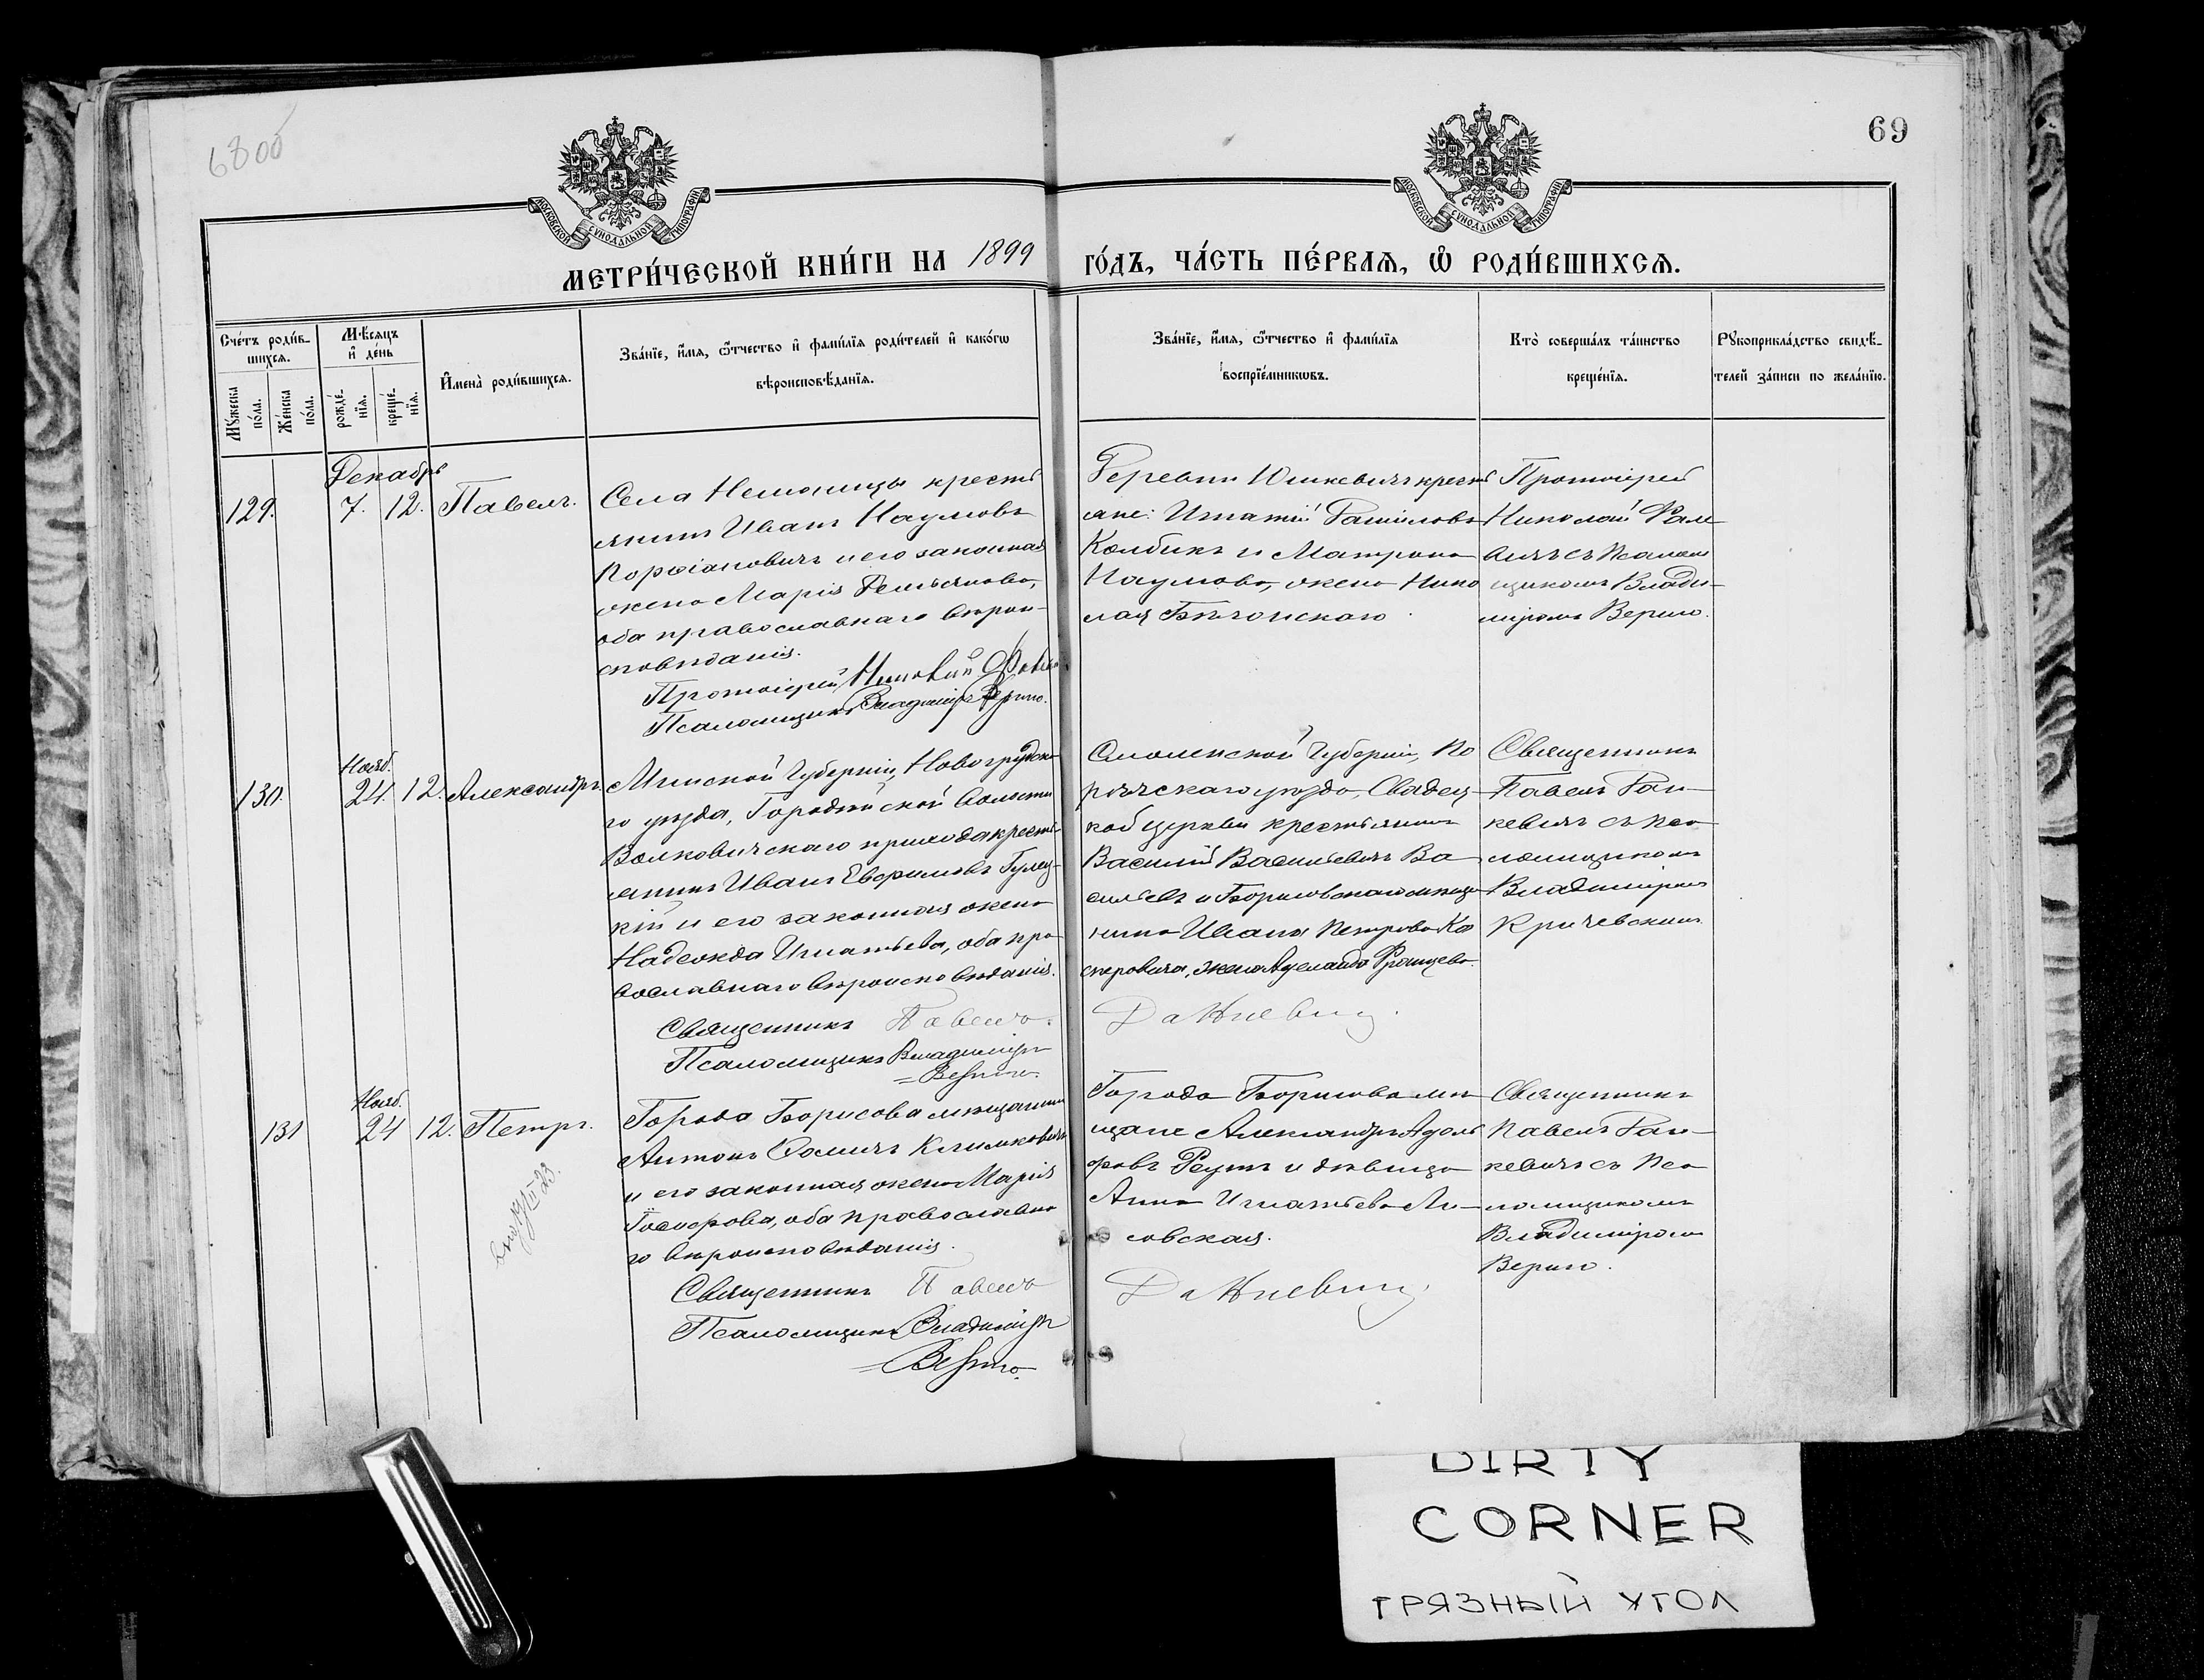 6800
69
МОСКОВСКОЙ СѴНОДАЛЬНОЙ ТИПОГРАФІИ
МОСКОВСКОЙ СѴНОДАЛЬНОЙ ТИПОГРАФІИ
МЕТРИ́ЧЕСКОЙ КНИ́ГИ НА 1899 ГО́ДЪ, ЧА́СТЬ ПЕ́РВАѦ, Ѽ РОДИ́ВШИХСѦ.
Сче́тъ роди́в-
шихсѧ.
Мꙋжеска по́ла.
Же́нска по́ла.
Мѣсѧцъ и҆ де́нь
рожде́-нїѧ.
креще́-нїѧ.
И҆мена̀ роди́вшихсѧ.
Зва́нїе, и҆́мѧ, ѻ҆́тчество и҆ фамі́лїѧ роди́телей и҆ како́гѡ
вѣроисповѣ́данїѧ.
Зва́нїе, и҆́мѧ, ѻ҆́тчество и҆ фамі́лїѧ
воспрїе́мникѡвъ.
Кто̀ соверша́лъ та́инство
креще́нїѧ.
Рꙋкоприкла́дство свидѣ́-
телей за́писи по жела́нїю.
Декабрь
129. 7. 12. Павелъ.
Села Неманицы кресть
янинъ Иванъ Наумовъ
и его законная
жена Марія Демьянова,
оба православнаго вѣрои-
сповѣданія.
Протоіерей Николай
Псаломщикъ Владиміръ Верио.
Деревни Юшкевичъ кресть
яне: Игнатій
Колбикъ и Матрона
Наумова, жена Нико
лая
Протоіерей
Николай
съ Псалом
щикомъ Влади-
міромъ Верио.
Нояб.
130. 24. 12. Александръ.
Минской Губерніи, Новогрудска
го уѣзда, Городейской Волости
Волковичскаго прихода кресть-
янинъ Иванъ Гулец-
кій и его законная жена
Надежда Игнатьева, оба пра
вославнаго вѣроисповѣданія.
Священникъ Павелъ
Псаломщикъ Владиміръ
Верио.
Смоленской Губерніи, По
рѣчскаго уѣзда,
кой церкви крестьянинъ
Василій Васильевичъ Ва
сильевъ и Борисовскаго мѣща
нина Ивана Петрова Ка
сперовича, жена Аделаида Францева.
Священникъ
Павелъ
кевичъ съ Пса
ломщикомъ
Владиміромъ
Кричевскимъ
Нояб.
131 24 12. Петръ.
Города Борисова мѣщанинъ
Антонъ Климковичъ
и его законная жена Марія
Іосифова, оба православна
го вѣроисповѣданія.
Священникъ Павелъ
Псаломщикъ Владиміръ
Верио.
Города Борисова мѣ
щане Александръ Адоль
фовъ Реутъ и дѣвица
Анна Игнатьева Ли-
совская.
Священникъ
Павелъ
кевичъ съ Пса
ломщикомъ
Владиміромъ
Верио.
DIRTY
CORNER
ГРЯЗНЫЙ УГОЛ